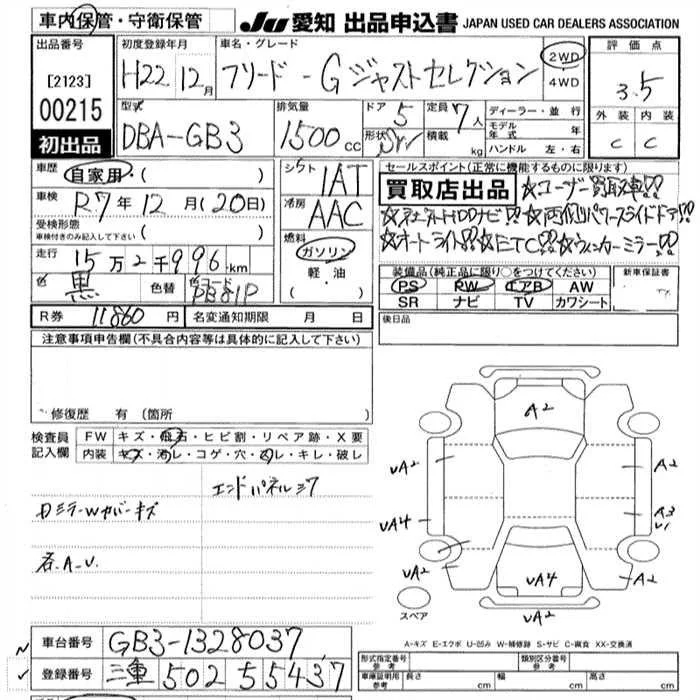 車内保管・守衛保管
JU 愛知 出品申込書 JAPAN USED CAR DEALERS ASSOCIATION
出品番号
[2123]
00215
初出品
初度登録年月
H22 12月
車名・グレード
フリード - G ジャストセレクション
2WD
4WD
評価点
3.5
外装 内装
C C
型式
DBA-GB3
排気量
1500 cc
ドア 5
形状 SW
定員 7人
積載 kg
ディーラー・並行
モデル年式 年
ハンドル 左・右
車歴
自家用・( )
車検
R7年12月(20日)
受検形態
車検付きのみ記入して下さい ( )
走行
15万2千996km
色
黒
色替
カラーコード
PB81P
シフト
IAT
冷房
AAC
燃料
ガソリン
軽・油
( )
セールスポイント(正常に機能するものに限ります)
買取店出品
☆ユーザー買取車!!
HDDナビ!!☆両側パワースライドドア!!
☆オートライト!!☆ETC!!☆ウィンカーミラー!!
装備品(純正品に限り○をつけてください)
PS PW エアB AW
SR ナビ TV カワシート
新車保証書
後日品
R券 11860円
名変通知期限 月 日
注意事項申告欄(不具合内容等は具体的に記入して下さい)
修復歴 有(箇所
検査員記入欄
FW キズ・飛石・ヒビ割・リペア跡・X要
内装 キズ・汚レ・コゲ・穴・スレ・キレ・破レ
エンドパネルミワ
ドミラーWカバーキズ
各.A.U.
A2
UA2
A2
UA4
A3
U1
UA2
UA4
A2
UA2
スペア
A-キズ E-エクボ U-凹み W-補修跡 S-サビ C-腐食 XX-交換済
車台番号 GB3-1328037
登録番号 三重 502 5 5437
形式指定番号
参考
類別区分番号
参考
車庫証明用
参考
長さ cm
幅 cm
高さ cm